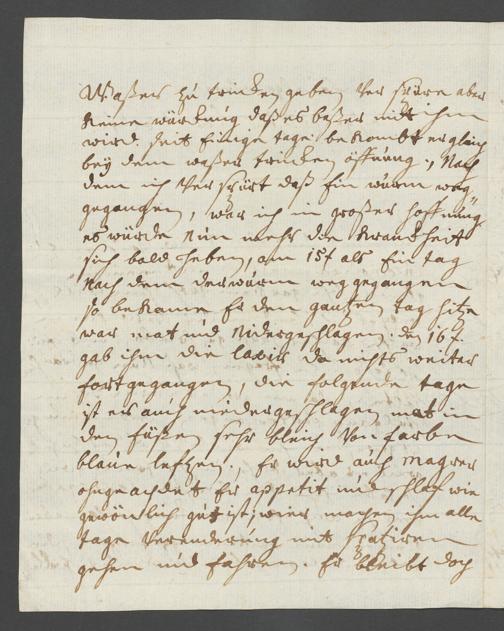 Waßer zu trincken geben Ver spüre aber
keine würckung daß es beßer mit ihm
wird. seit Einige tage bekombt er gleich
bey dem waßer trincken öffnung, Nach
dem ich Ver spürt daß Ein wurm weg
gegangen, war ich in großer hoffnung
es würde nun mehr die Kranckheit
sich bald heben, am 15t als Ein tag
Nach dem der wurm weg gegangen
so bekame Er den gantzen tag hitze
war mat und Nidergeschlagen. den 16t.
gab ihm die laxir da nichts weiter
fortgegangen, die folgende tage
ist er auch niedergeschlagen mat in
den füßen sehr bleich Von farbe
blaue lefzen. Er wird auch magrer
ohngeachdet Er appetit und schlaf wie
gewönlich gut ist, wier machen ihm alle
tage Veränderung mit spatziren
gehen und fahren. Er bleibt doch